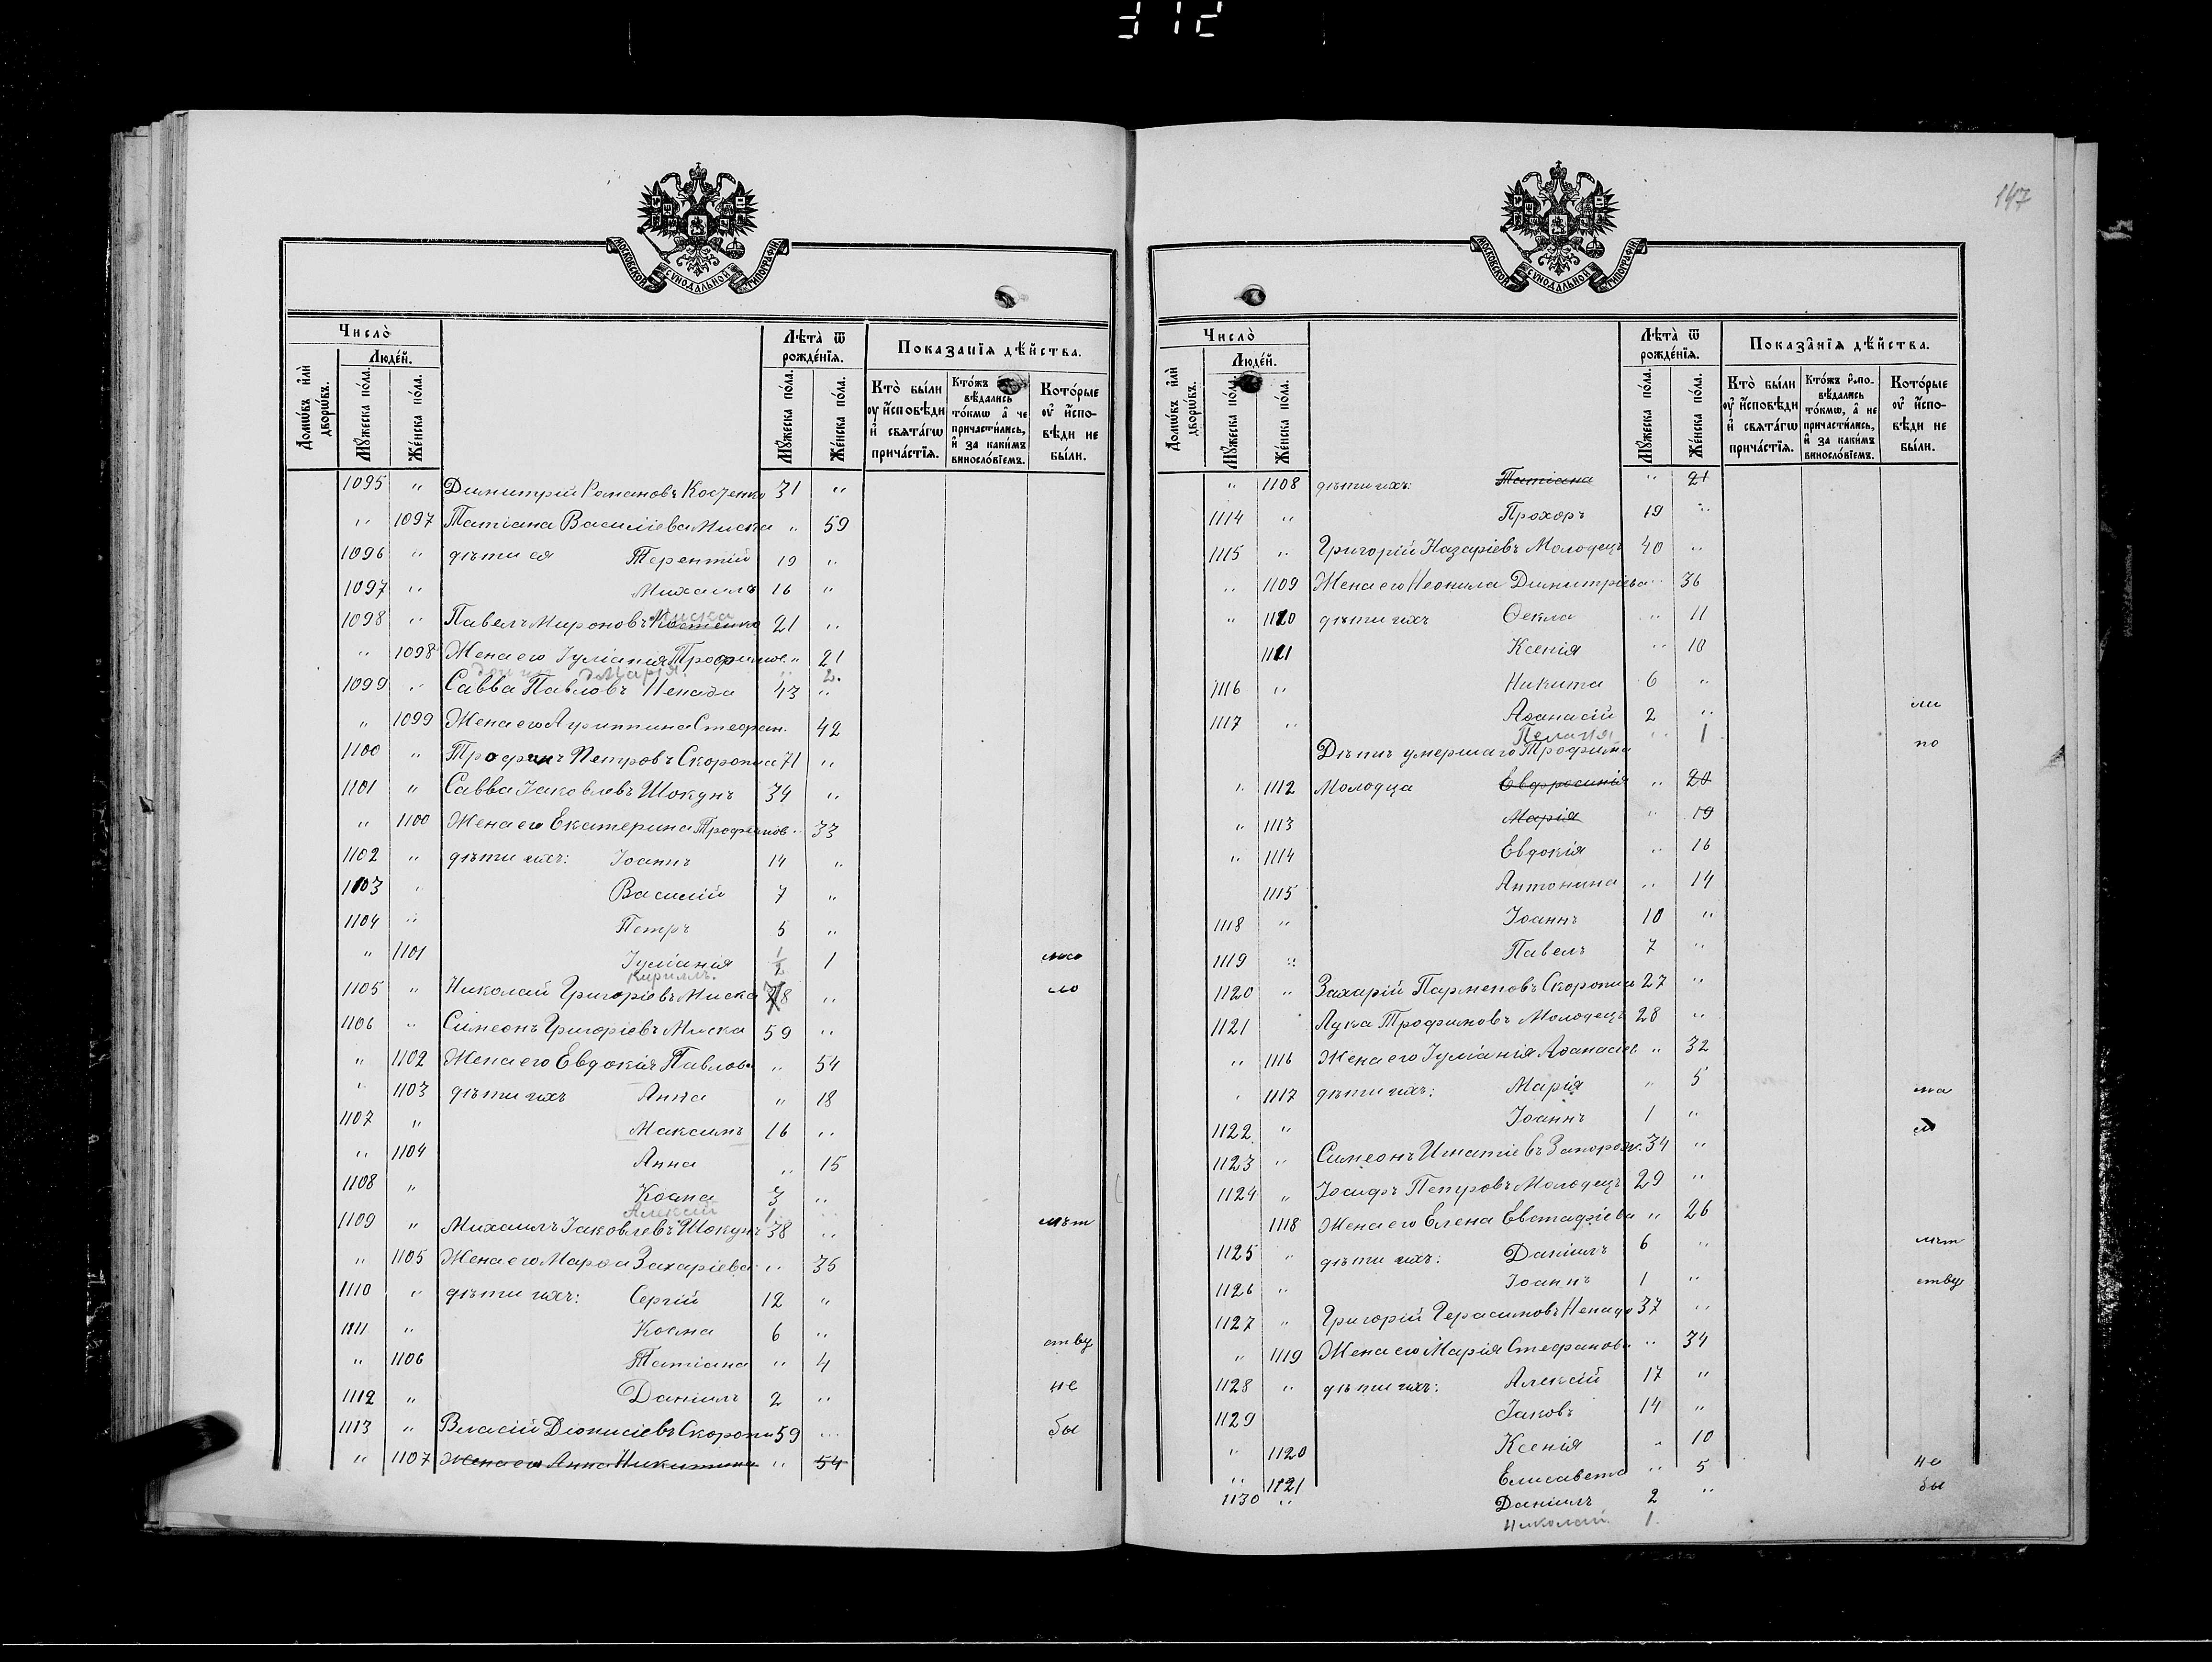 312
147
МОСКОВСКОЙ СѴНОДАЛЬНОЙ ТИПОГРАФІИ
Число̀
Люде́й.
Домѡ́въ и҆лѝ дворѡ́въ.
Мꙋ́жеска по́ла.
Же́нска по́ла.
Лѣ́та ѿ рожде́нїя.
Мꙋ́жеска по́ла.
Же́нска по́ла.
Показа́нїя дѣ́йства.
Кто̀ бы́ли оу҆ и҆сповѣди и҆ свята́гѡ прича́стїя.
Кто́жъ вѣдались то́кмѡ а҆ не причасти́лись, и҆ за каки́мъ винослові́емъ.
Кото́рые оу҆ и҆спо- вѣди не бы́ли.
1095 " Димитрій Романовъ Косченко 31 "
" 1097 Татіана Василіева Миска " 59
1096 " дѣти ея Терентій 19 "
1097 " Михаилъ 16 "
Миска
1098 " Павелъ Мироновъ Костенко 21 "
" 1098 Жена его Іуліанія Трофимов. " 21
дочь Марія. " 2.
1099 " Савва Павловъ Ненада 43 "
" 1099 Жена его Агриппина Стефан. 42
1100 " Трофимъ Петровъ Скоропис 71 "
1101 " Савва Іаковлевъ Шокунъ 34 "
" 1100 Жена его Екатерина Трофимов. " 33
1102 " дѣти ихъ: Іоаннъ 14 "
1103 " Василій 7 "
1104 " Петръ 5 "
" 1101 Іуліанія 1 мало
Кириллъ. 1/2
1105 " Николай Григоріевъ Миска 78 " ло
1106 " Симеонъ Григоріевъ Миска 59 "
" 1102 Жена его Евдокія Павлова " 54
" 1103 дѣти ихъ Анна " 18
1107 " Максимъ 16 "
" 1104 Анна " 15
1108 " Косма 3 "
Алексій 1 "
1109 " Михаилъ Іаковлевъ Шокунъ 38 " лѣт
" 1105 Жена его Марфа Захаріева " 35
1110 " дѣти ихъ: Сергій 12 "
1111 " Косма 6 " ству
" 1106 Татіана " 4
1112 " Даніилъ 2 " не
1113 " Власій Діонисіевъ Скоропи 59 " бы
" 1107 Жена его Анна Никитина " 54
МОСКОВСКОЙ СѴНОДАЛЬНОЙ ТИПОГРАФІИ
Число̀
Люде́й.
Домѡ́въ и҆лѝ дворѡ́въ.
Мꙋ́жеска по́ла.
Же́нска по́ла.
Лѣ́та ѿ рожде́нїя.
Мꙋ́жеска по́ла.
Же́нска по́ла.
Показа́нїя дѣ́йства.
Кто̀ бы́ли оу҆ и҆сповѣди и҆ свята́гѡ прича́стїя.
Кто́жъ и҆спо- вѣдались то́кмѡ, а҆ не причасти́лись, и҆ за каки́мъ винослові́емъ.
Кото́рые оу҆ и҆спо- вѣди не бы́ли.
" 1108 дѣти ихъ: Татіана " 21
1114 " Прохоръ 19 "
1115 " Григорій Назаріевъ Молодецъ 40 "
" 1109 Жена его Неонила Димитріева " 36
" 1110 дѣти ихъ Ѳекла " 11
1111 Ксенія " 10
1116 " Никита 6 "
1117 " Аѳанасій 2 " ли
Пелагія " 1
Дѣти умершаго Трофима по
" 1112 Молодца Евфросинія " 20
" 1113 Марія " 19
" 1114 Евдокія " 16
1115 Антонина " 14
1118 " Іоаннъ 10 "
1119 " Павелъ 7 "
1120 " Захарій Парменовъ Скоропис 27 "
1121 Лука Трофимовъ Молодецъ 28 "
" 1116 Жена его Іуліанія Аѳанасіев " 32
" 1117 дѣти ихъ: Марія " 5 ма
1122 " Іоаннъ 1 " ло
1123 " Симеонъ Игнатіевъ Запорож. 34 "
1124 " Іосифъ Петровъ Молодецъ 29 "
1118 Жена его Елена Евстафіева " 26
1125 " дѣти ихъ: Даніилъ 6 " лѣт
1126 " Іоаннъ 1 " ству
1127 " Григорій Герасимовъ Ненада 37 "
" 1119 Жена его Марія Стефанова " 34
1128 " дѣти ихъ: Алексій 17 "
1129 Іаковъ 14 "
" 1120 Ксенія " 10
" 1121 Елисавета " 5 не
1130 " Даніилъ 2 " бы
Николай 1.